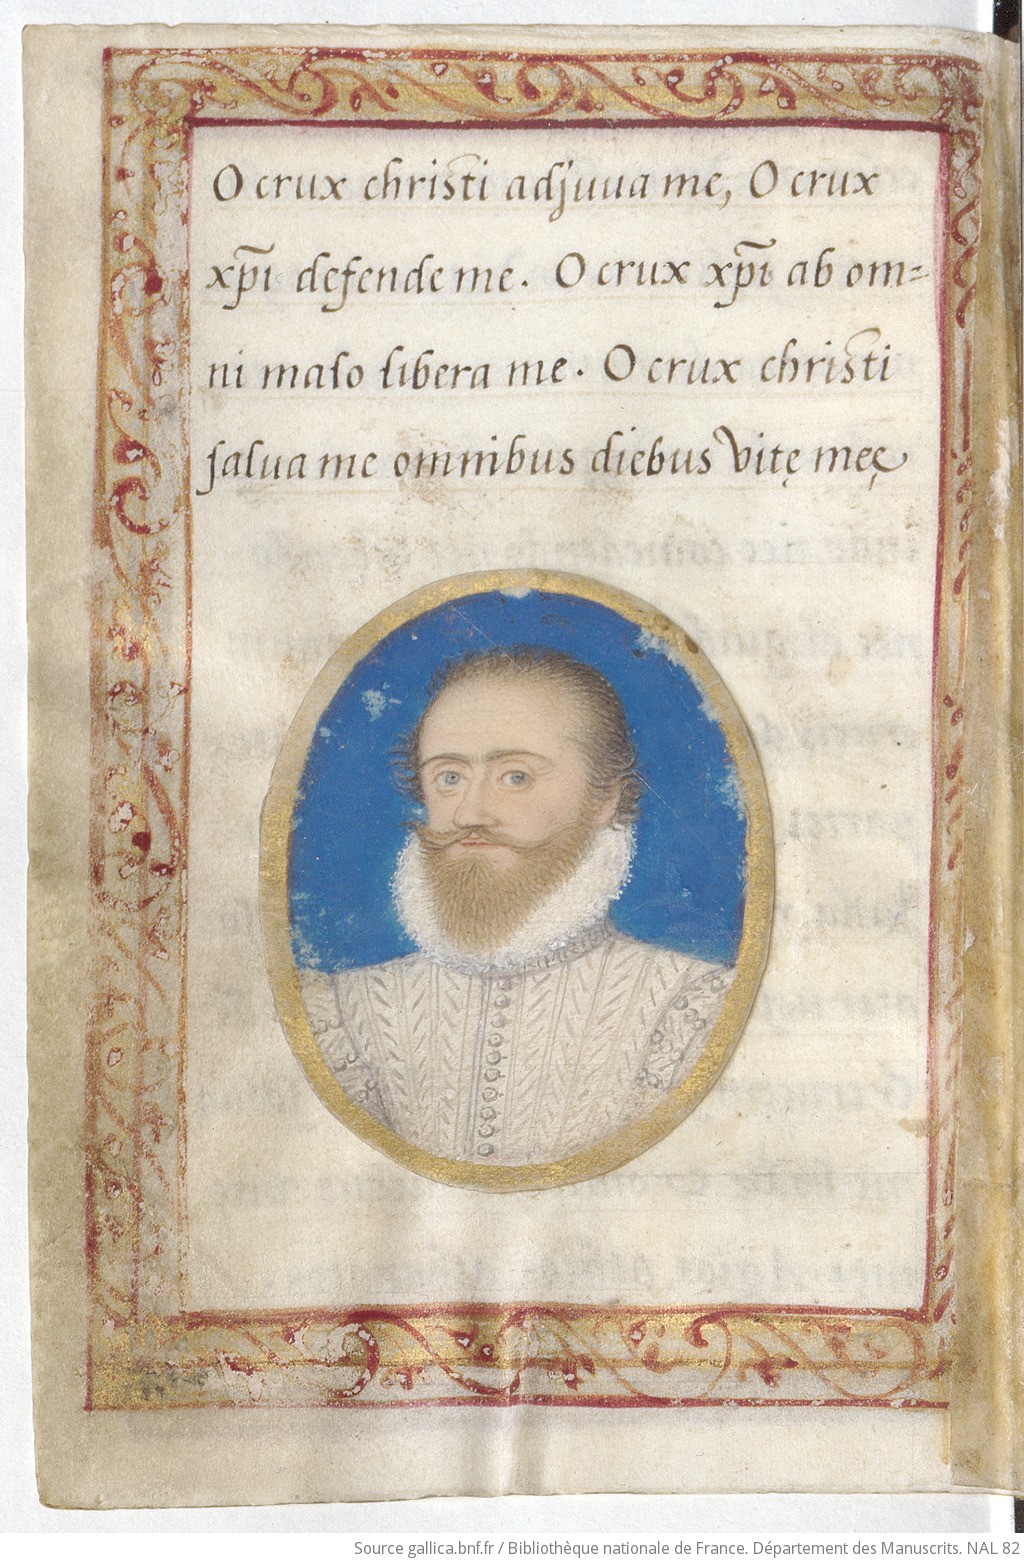 O crux christi adjuua me, O crux
xp̃i defende me. O crux xp̃i ab om=
ni malo libera me. O crux christi
salua me omnibus diebus vitę meę
Source gallica.bnf.fr / Bibliothèque nationale de France. Département des Manuscrits. NAL 82